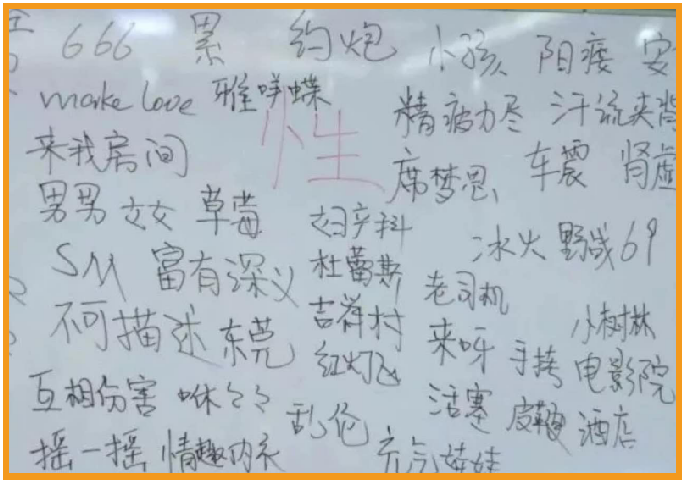 666 累 约炮 小孩 阳痿 安
make love 雅咩蝶 精疲力尽 汗流夹背
性
来我房间 席梦思 车震 肾虚
男男 女女 草莓 妇产科 冰火 野战 69
SM 富有深义 杜蕾斯 老司机
不可描述 东莞 吉祥村 来呀 小树林
红灯 手铐 电影院
互相伤害 咻々々 乱伦 活塞 皮鞭 酒店
摇一摇 情趣内衣 充气娃娃